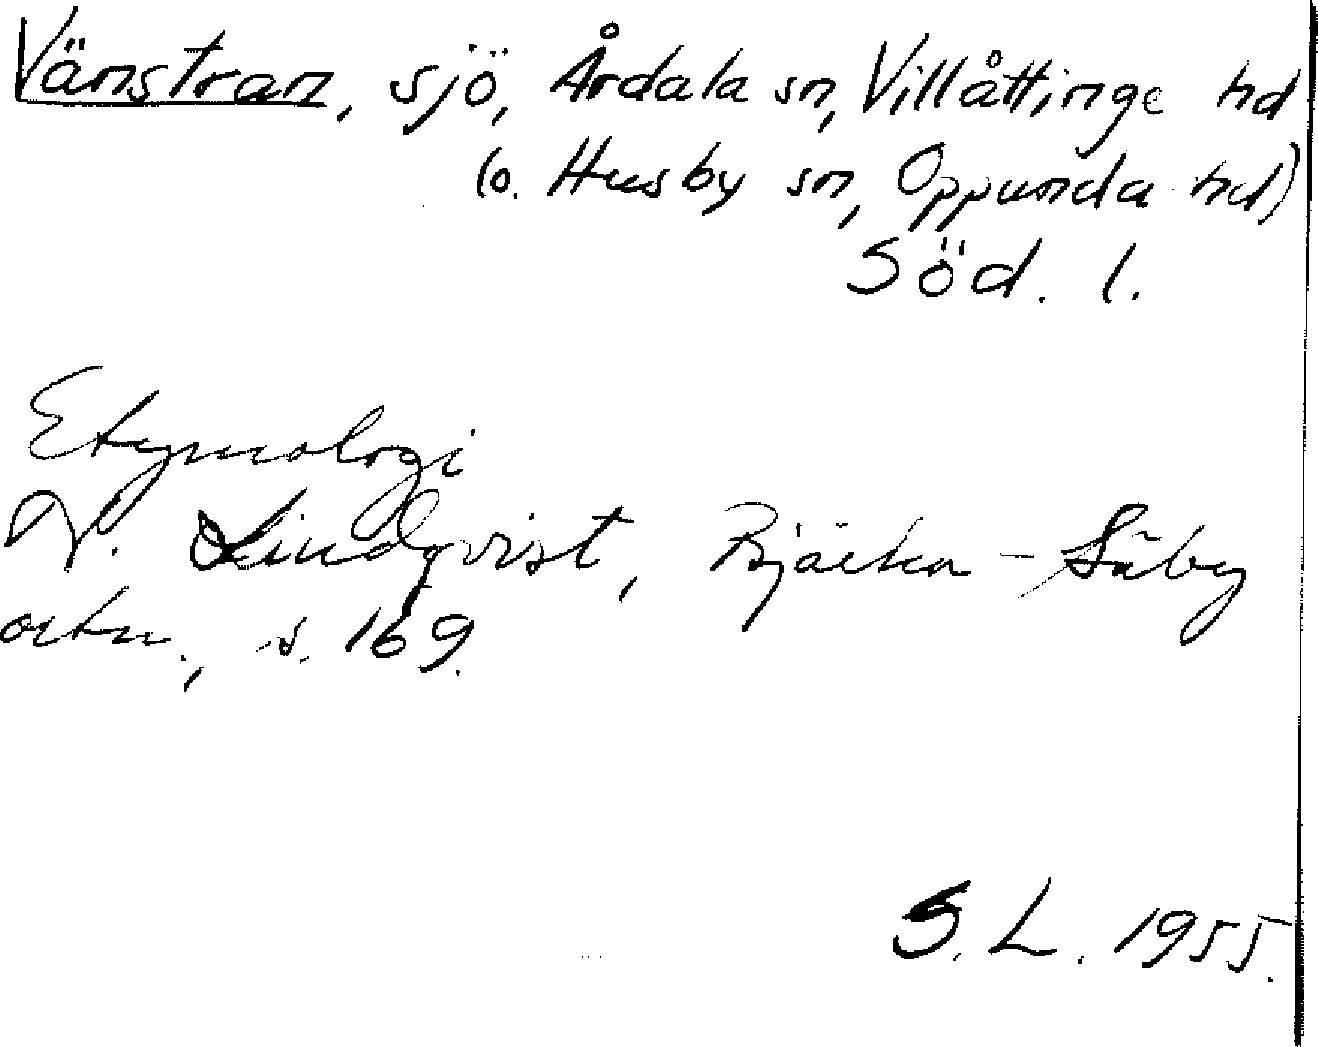 Vänstran, sjö, Årdala sn, Villåttinge hd
(o. Husby sn, Oppunda hd)
Söd. l.
Etymologi
N. Lindqvist, Bjärka-Säby
ortn., s. 169.
S. L. 1955.